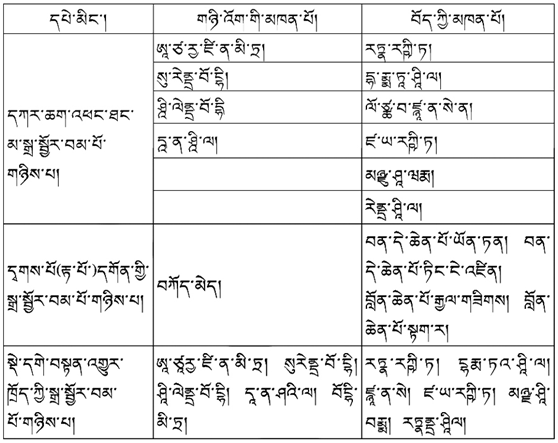 དཔེ་མིང་། གཉི་འོག་གི་མཁན་པོ། བོད་ཀྱི་མཁན་པོ།
ཨཱ་ཙརྱ་ཛི་ན་མི་ཏྲ། རཏྣ་རཀྵི་ཏ།
སུ་རེནྡྲ་བོ་དྷི། དྷ་རྨྨ་ཏཱ་ཤཱི་ལ།
དཀར་ཆག་འཕང་ཐང་ ཤཱི་ལེནྡྲ་བོ་དྷི ལོ་ཙྪ་བ་ཛྙཱ་ན་སེ་ན།
མ་སྒྲ་སྦྱོར་བམ་པོ་ དཱ་ན་ཤཱི་ལ། ཛ་ཡ་རཀྵི་ཏ།
གཉིས་པ། མཉྫུ་ཤཱི་ཝརྨ།
རེནྡྲ་ཤཱི་ལ།
དྭགས་པོ(རྟ་པོ་)དགོན་གྱི་ བཀོད་མེད། བན་དེ་ཆེན་པོ་ཡོན་ཏན། བན་
སྒྲ་སྦྱོར་བམ་པོ་གཉིས་པ། དེ་ཆེན་པོ་ཏིང་ངེ་འཛིན།
བློན་ཆེན་པོ་རྒྱལ་གཟིགས། བློན་
ཆེན་པོ་སྟག་ར།
སྡེ་དགེ་བསྟན་འགྱུར་ ཨཱ་ཙཱརྱ་ཛི་ན་མི་ཏྲ། སུརེནྡྲ་བོ་དྷི། རཏྣ་རཀྵི་ཏ། དྷརྨ་ཏཱའ་ཤཱི་ལ།
ཁྲོད་ཀྱི་སྒྲ་སྦྱོར་བམ་ ཤཱི་ལེནྡྲ་བོ་དྷི། དཱ་ན་ཤའི་ལ། བོདྷི་ ཛྙཱ་ན་སེ། ཛ་ཡ་རཀྵི་ཏ། མཉྫུ་ཤཱི་
པོ་གཉིས་པ། མི་ཏྲ། བམྨ། རཏྣནྡྲ་ཤཱིལ།